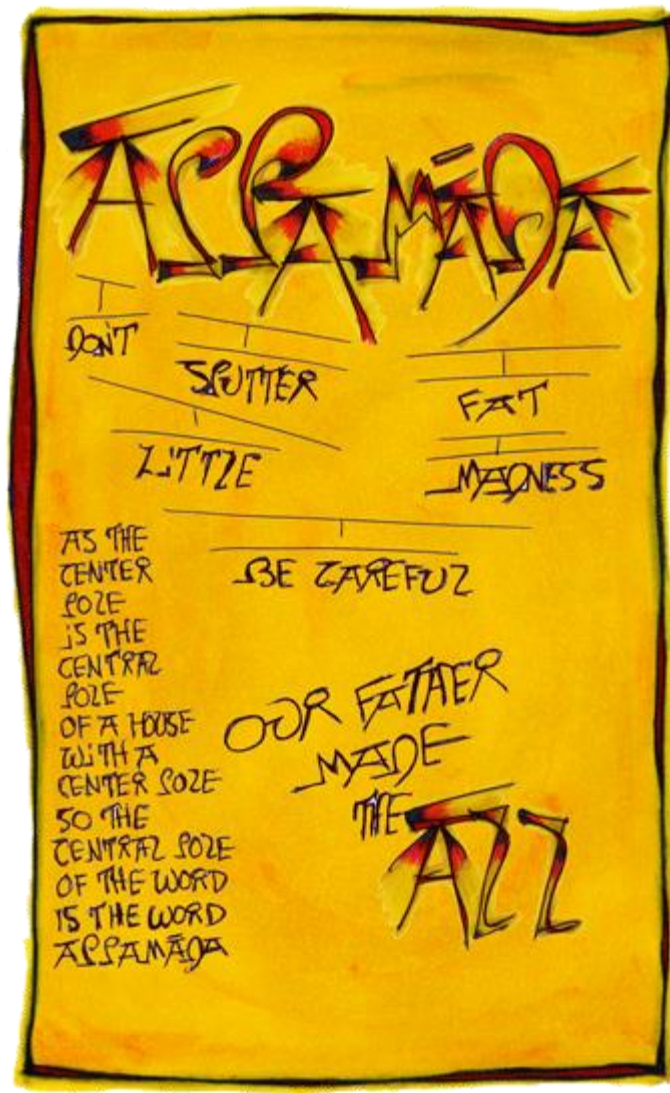 APPAMĀDA
DON'T
SPUTTER
FAT
LITTLE
MADNESS
BE CAREFUL
AS THE
CENTER
POLE
IS THE
CENTRAL
POLE
OF A HOUSE
WITH A
CENTER POLE
SO THE
CENTRAL POLE
OF THE WORD
IS THE WORD
APPAMĀDA
OUR FATHER
MADE
THE ALL